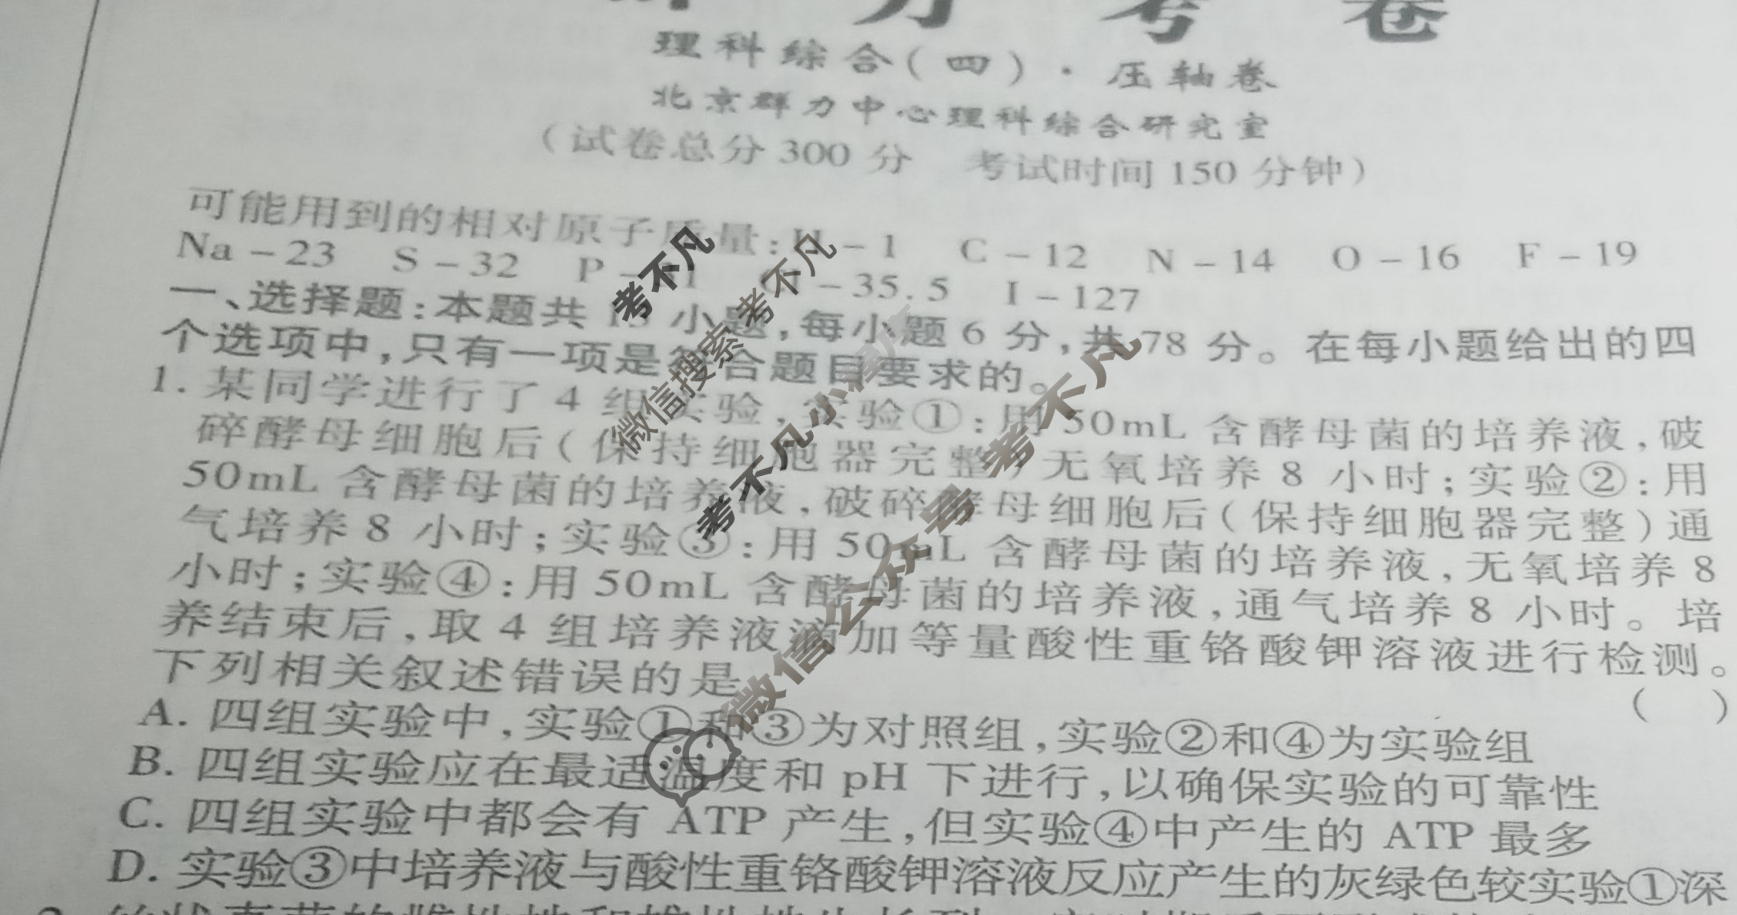 力考卷
理科综合(四)·压轴卷
北京群力中心理科综合研究室
(试卷总分 300 分 考试时间 150 分钟)
可能用到的相对原子质量:H－1 C－12 N－14 O－16 F－19
Na－23 S－32 P－31 Cl－35.5 I－127
一、选择题:本题共 13 小题,每小题 6 分,共 78 分。在每小题给出的四
个选项中,只有一项是符合题目要求的。
1. 某同学进行了 4 组实验,实验①:用 50mL 含酵母菌的培养液,破
碎酵母细胞后(保持细胞器完整)无氧培养 8 小时;实验②:用
50mL 含酵母菌的培养液,破碎酵母细胞后(保持细胞器完整)通
气培养 8 小时;实验③:用 50mL 含酵母菌的培养液,无氧培养 8
小时;实验④:用 50mL 含酵母菌的培养液,通气培养 8 小时。培
养结束后,取 4 组培养液滴加等量酸性重铬酸钾溶液进行检测。
下列相关叙述错误的是 ( )
A. 四组实验中,实验①和③为对照组,实验②和④为实验组
B. 四组实验应在最适温度和 pH 下进行,以确保实验的可靠性
C. 四组实验中都会有 ATP 产生,但实验④中产生的 ATP 最多
D. 实验③中培养液与酸性重铬酸钾溶液反应产生的灰绿色较实验①深
考不凡
微信搜索考不凡
考不凡小程序
微信公众号 考不凡